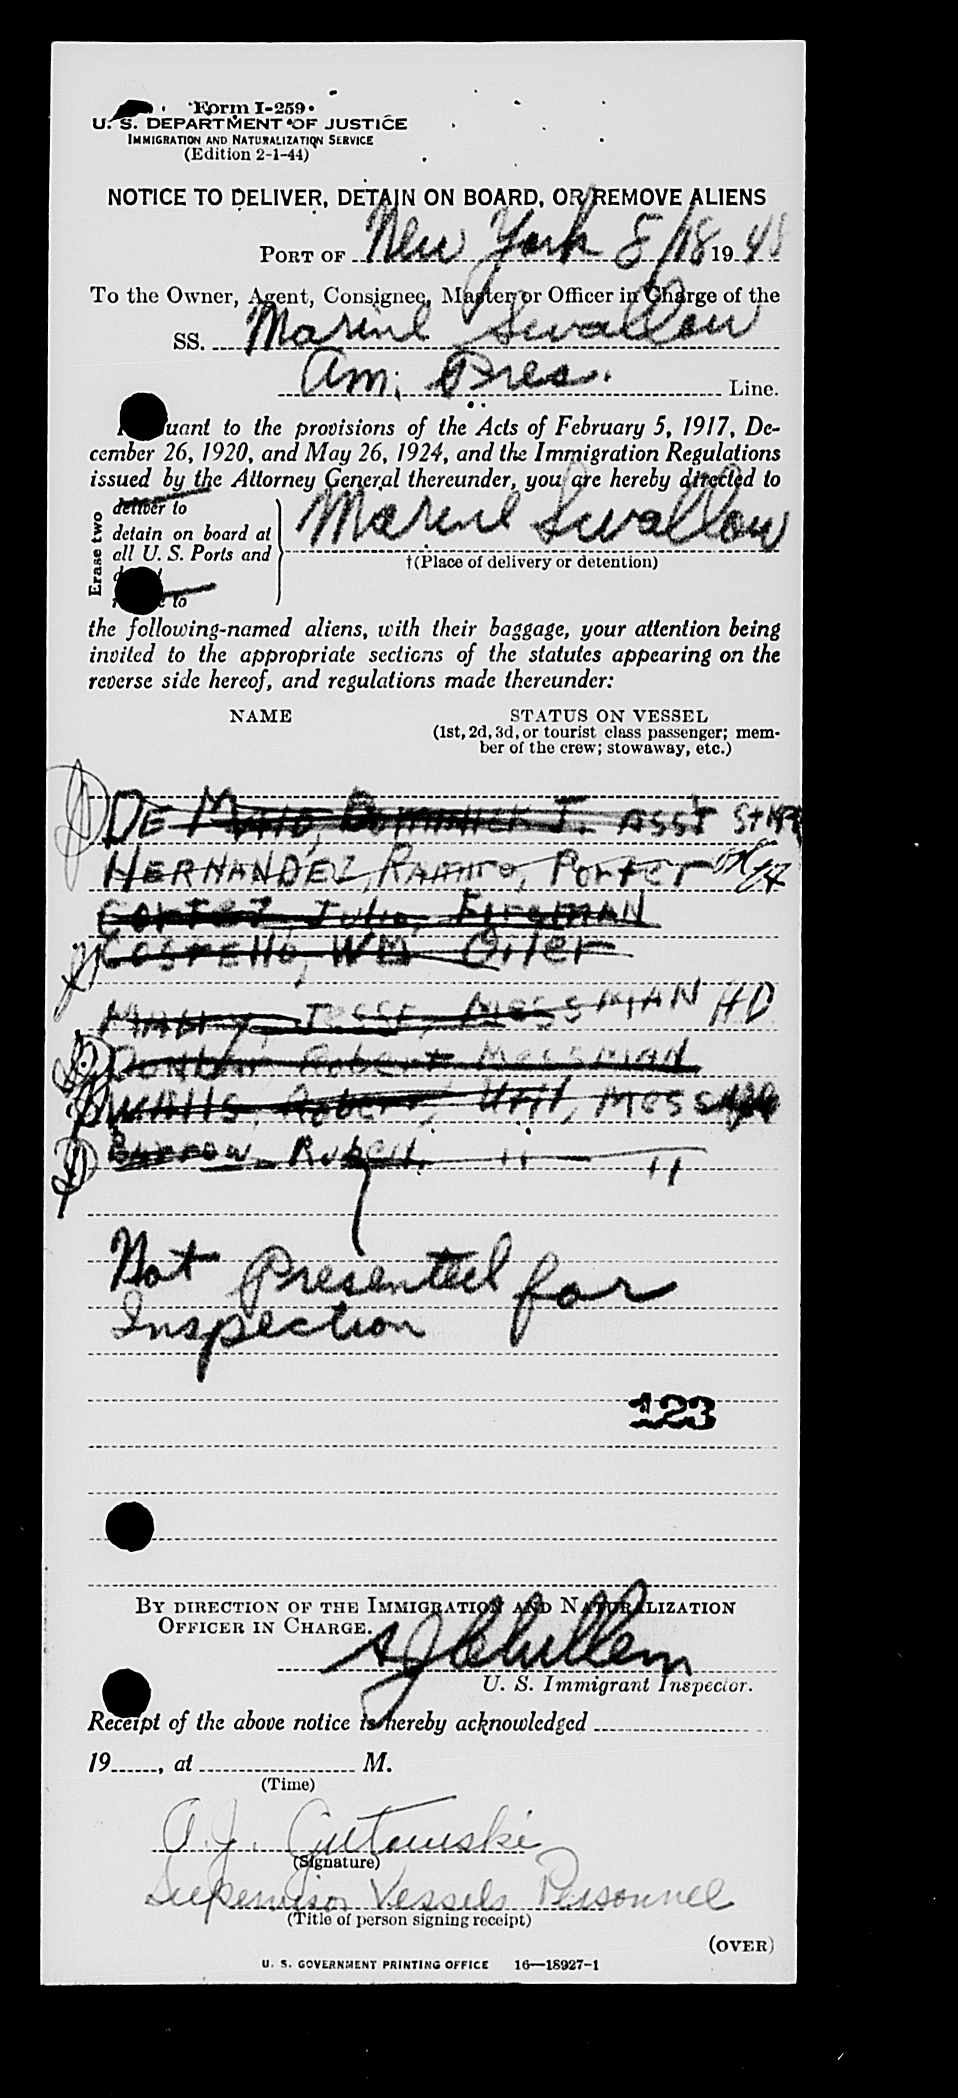 Form I-259
U. S. DEPARTMENT OF JUSTICE
IMMIGRATION AND NATURALIZATION SERVICE
(Edition 2-1-44)
NOTICE TO DELIVER, DETAIN ON BOARD, OR REMOVE ALIENS
PORT OF New York 8/18 19 48
To the Owner, Agent, Consignee, Master or Officer in Charge of the
SS. Marine Swallow
Am. Pres. Line.
uant to the provisions of the Acts of February 5, 1917, De-
cember 26, 1920, and May 26, 1924, and the Immigration Regulations
issued by the Attorney General thereunder, you are hereby directed to
Erase two
deliver to
detain on board at
all U. S. Ports and
to
Marine Swallow
†(Place of delivery or detention)
the following-named aliens, with their baggage, your attention being
invited to the appropriate sections of the statutes appearing on the
reverse side hereof, and regulations made thereunder:
NAME STATUS ON VESSEL
(1st, 2d, 3d, or tourist class passenger; mem-
ber of the crew; stowaway, etc.)
DE MAIO, DOMINICK J. ASST
HERNANDEZ, RAMIRO, PORTER
CORTEZ, Julio, FIREMAN
COSTELLO, WM OILER
JESSE, MESSMAN HD
DUNBAR Robert MESSMAN
WALLS, Robert, Util, MESS
BARROW, RUBEN, " "
Not Presented for
Inspection
123
BY DIRECTION OF THE IMMIGRATION AND NATURALIZATION
OFFICER IN CHARGE.
U. S. Immigrant Inspector.
Receipt of the above notice is hereby acknowledged
19 , at M.
(Time)
A. J. Gutowski
(Signature)
Supervisor Vessels Personnel
(Title of person signing receipt)
(OVER)
U. S. GOVERNMENT PRINTING OFFICE 16—18927-1